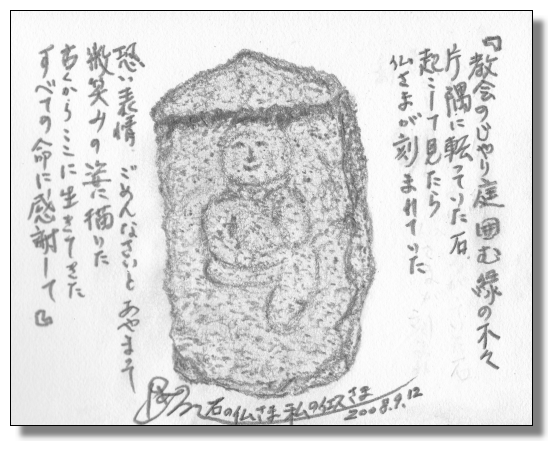 『教会のじゃり庭 囲む緑の木々
片隅に転っていた石
起こして見たら
仏さまが刻まれていた
恐い表情、ごめんなさいと あやまって
微笑みの姿に描いた
古くからここに生きてきた
すべての命に感謝して』
石の仏さま 手ムのイエスさま
2008.9.12